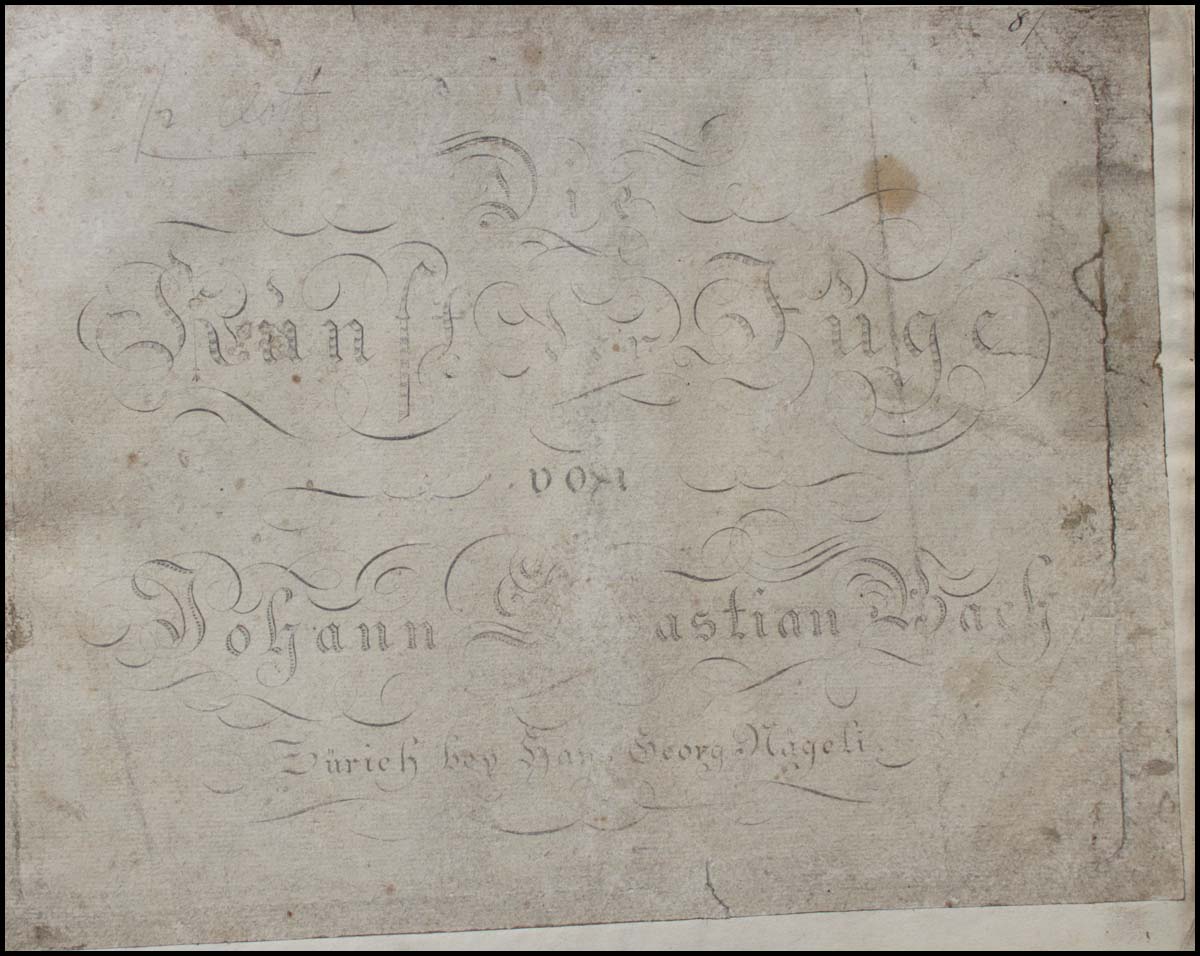 8/
Die
Kunst der Fuge
von
Johann Sebastian Bach
Zürich bey Hans Georg Nägeli.